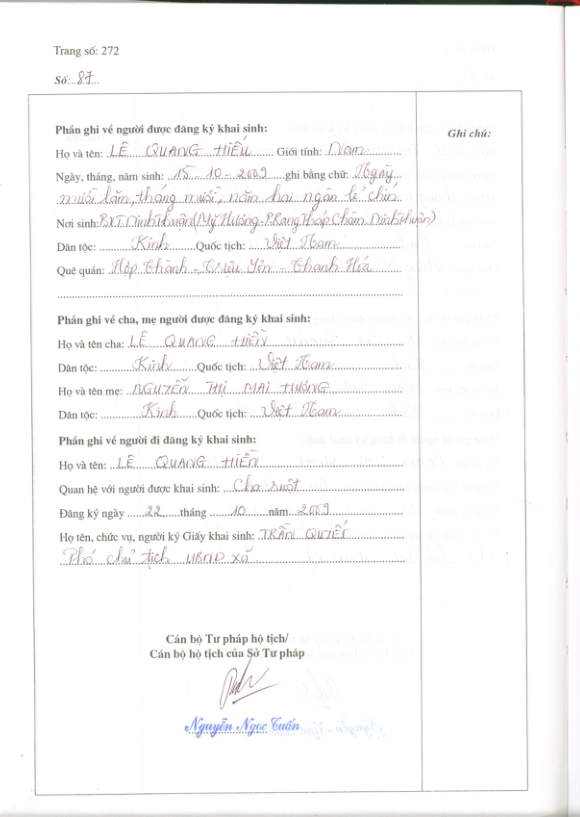 Trang số: 272
Số: 87
Phần ghi về người được đăng ký khai sinh:
Ghi chú:
Họ và tên: LÊ QUANG HIẾU Giới tính: Nam
Ngày, tháng, năm sinh: 15 - 10 - 2009 ghi bằng chữ: Ngày
mười lăm, tháng mười, năm hai ngàn lẻ chín
Nơi sinh: BVT Ninh Thuận (Mỹ Hương. P.Rang Tháp Chàm. Ninh Thuận)
Dân tộc: Kinh Quốc tịch: Việt Nam
Quê quán: Thành - Thiệu Yên - Thanh Hóa
Phần ghi về cha, mẹ người được đăng ký khai sinh:
Họ và tên cha: LÊ QUANG HIỀN
Dân tộc: Kinh Quốc tịch: Việt Nam
Họ và tên mẹ: NGUYỄN THỊ MAI HƯƠNG
Dân tộc: Kinh Quốc tịch: Việt Nam
Phần ghi về người đi đăng ký khai sinh:
Họ và tên: LÊ QUANG HIỀN
Quan hệ với người được khai sinh: Cha ruột
Đăng ký ngày 22 tháng 10 năm 2009
Họ tên, chức vụ, người ký Giấy khai sinh: TRẦN QUYẾT
Phó chủ tịch UBND xã
Cán bộ Tư pháp hộ tịch/
Cán bộ hộ tịch của Sở Tư pháp
Nguyễn Ngọc Tuấn